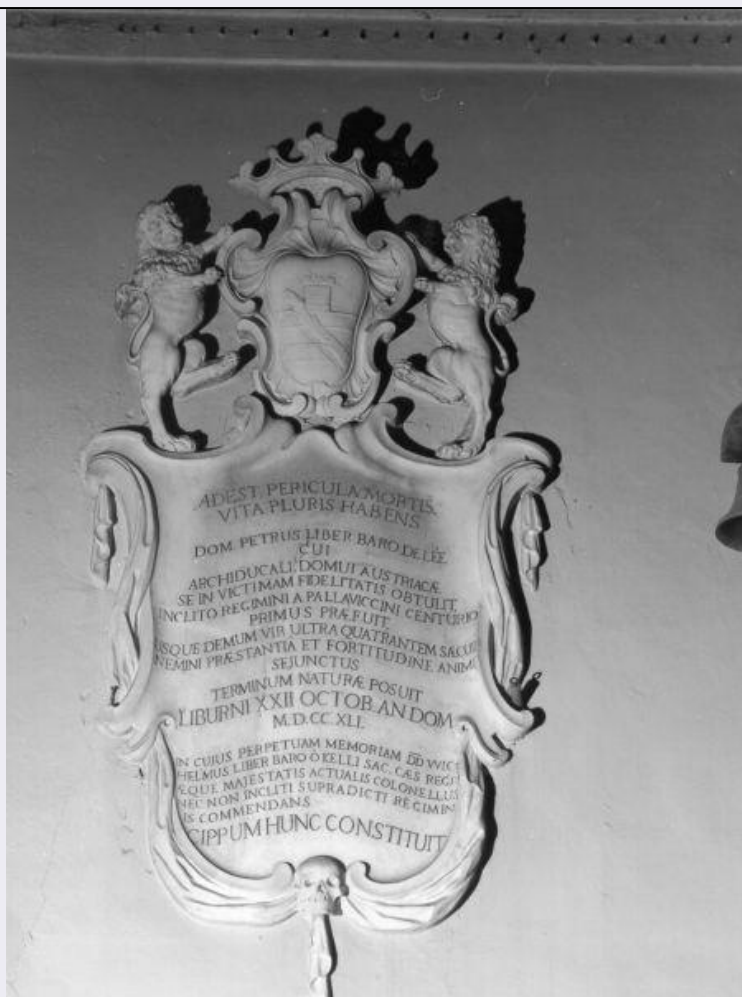 ADEST, PERICULA MORTIS,
VITA PLURIS HABENS
DOM. PETRUS LIBER BARO, DE LÉE.
CUI
ARCHIDUCALI, DOMUI AUSTRIACÆ
SE IN VICTIMAM FIDELITATIS OBTULIT,
INCLITO REGIMINI A PALLAVICCINI CENTURIO
PRIMUS PRÆFUIT,
ISQUE DEMUM VIR ULTRA QUATRANTEM SÆCULI
NEMINI PRÆSTANTIA ET FORTITUDINE ANIMI
SEJUNCTUS
TERMINUM NATURÆ POSUIT
LIBURNI XXII OCTOB. AN DOM
M.D.CC.XLI.
IN CUIUS PERPETUAM MEMORIAM DD
HELMUS LIBER BARO Ò KELLI SAC. CÆS REGI
ÆQUE MAJESTATIS ACTUALIS COLONELLUS
NEC NON INCLITI SUPRADICTI REGIMIN
IS COMMENDANS
CIPPUM HUNC CONSTITUIT